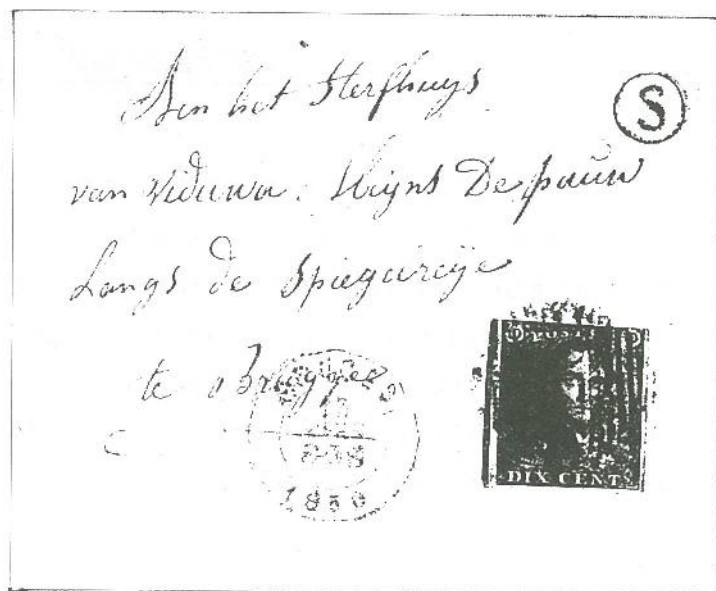 Aen het Sterfhuys
S
van Viduwe. Huyns De pauw
Langs de Spiegelreije
te Brugge
POSTES
DIX CENT
1850